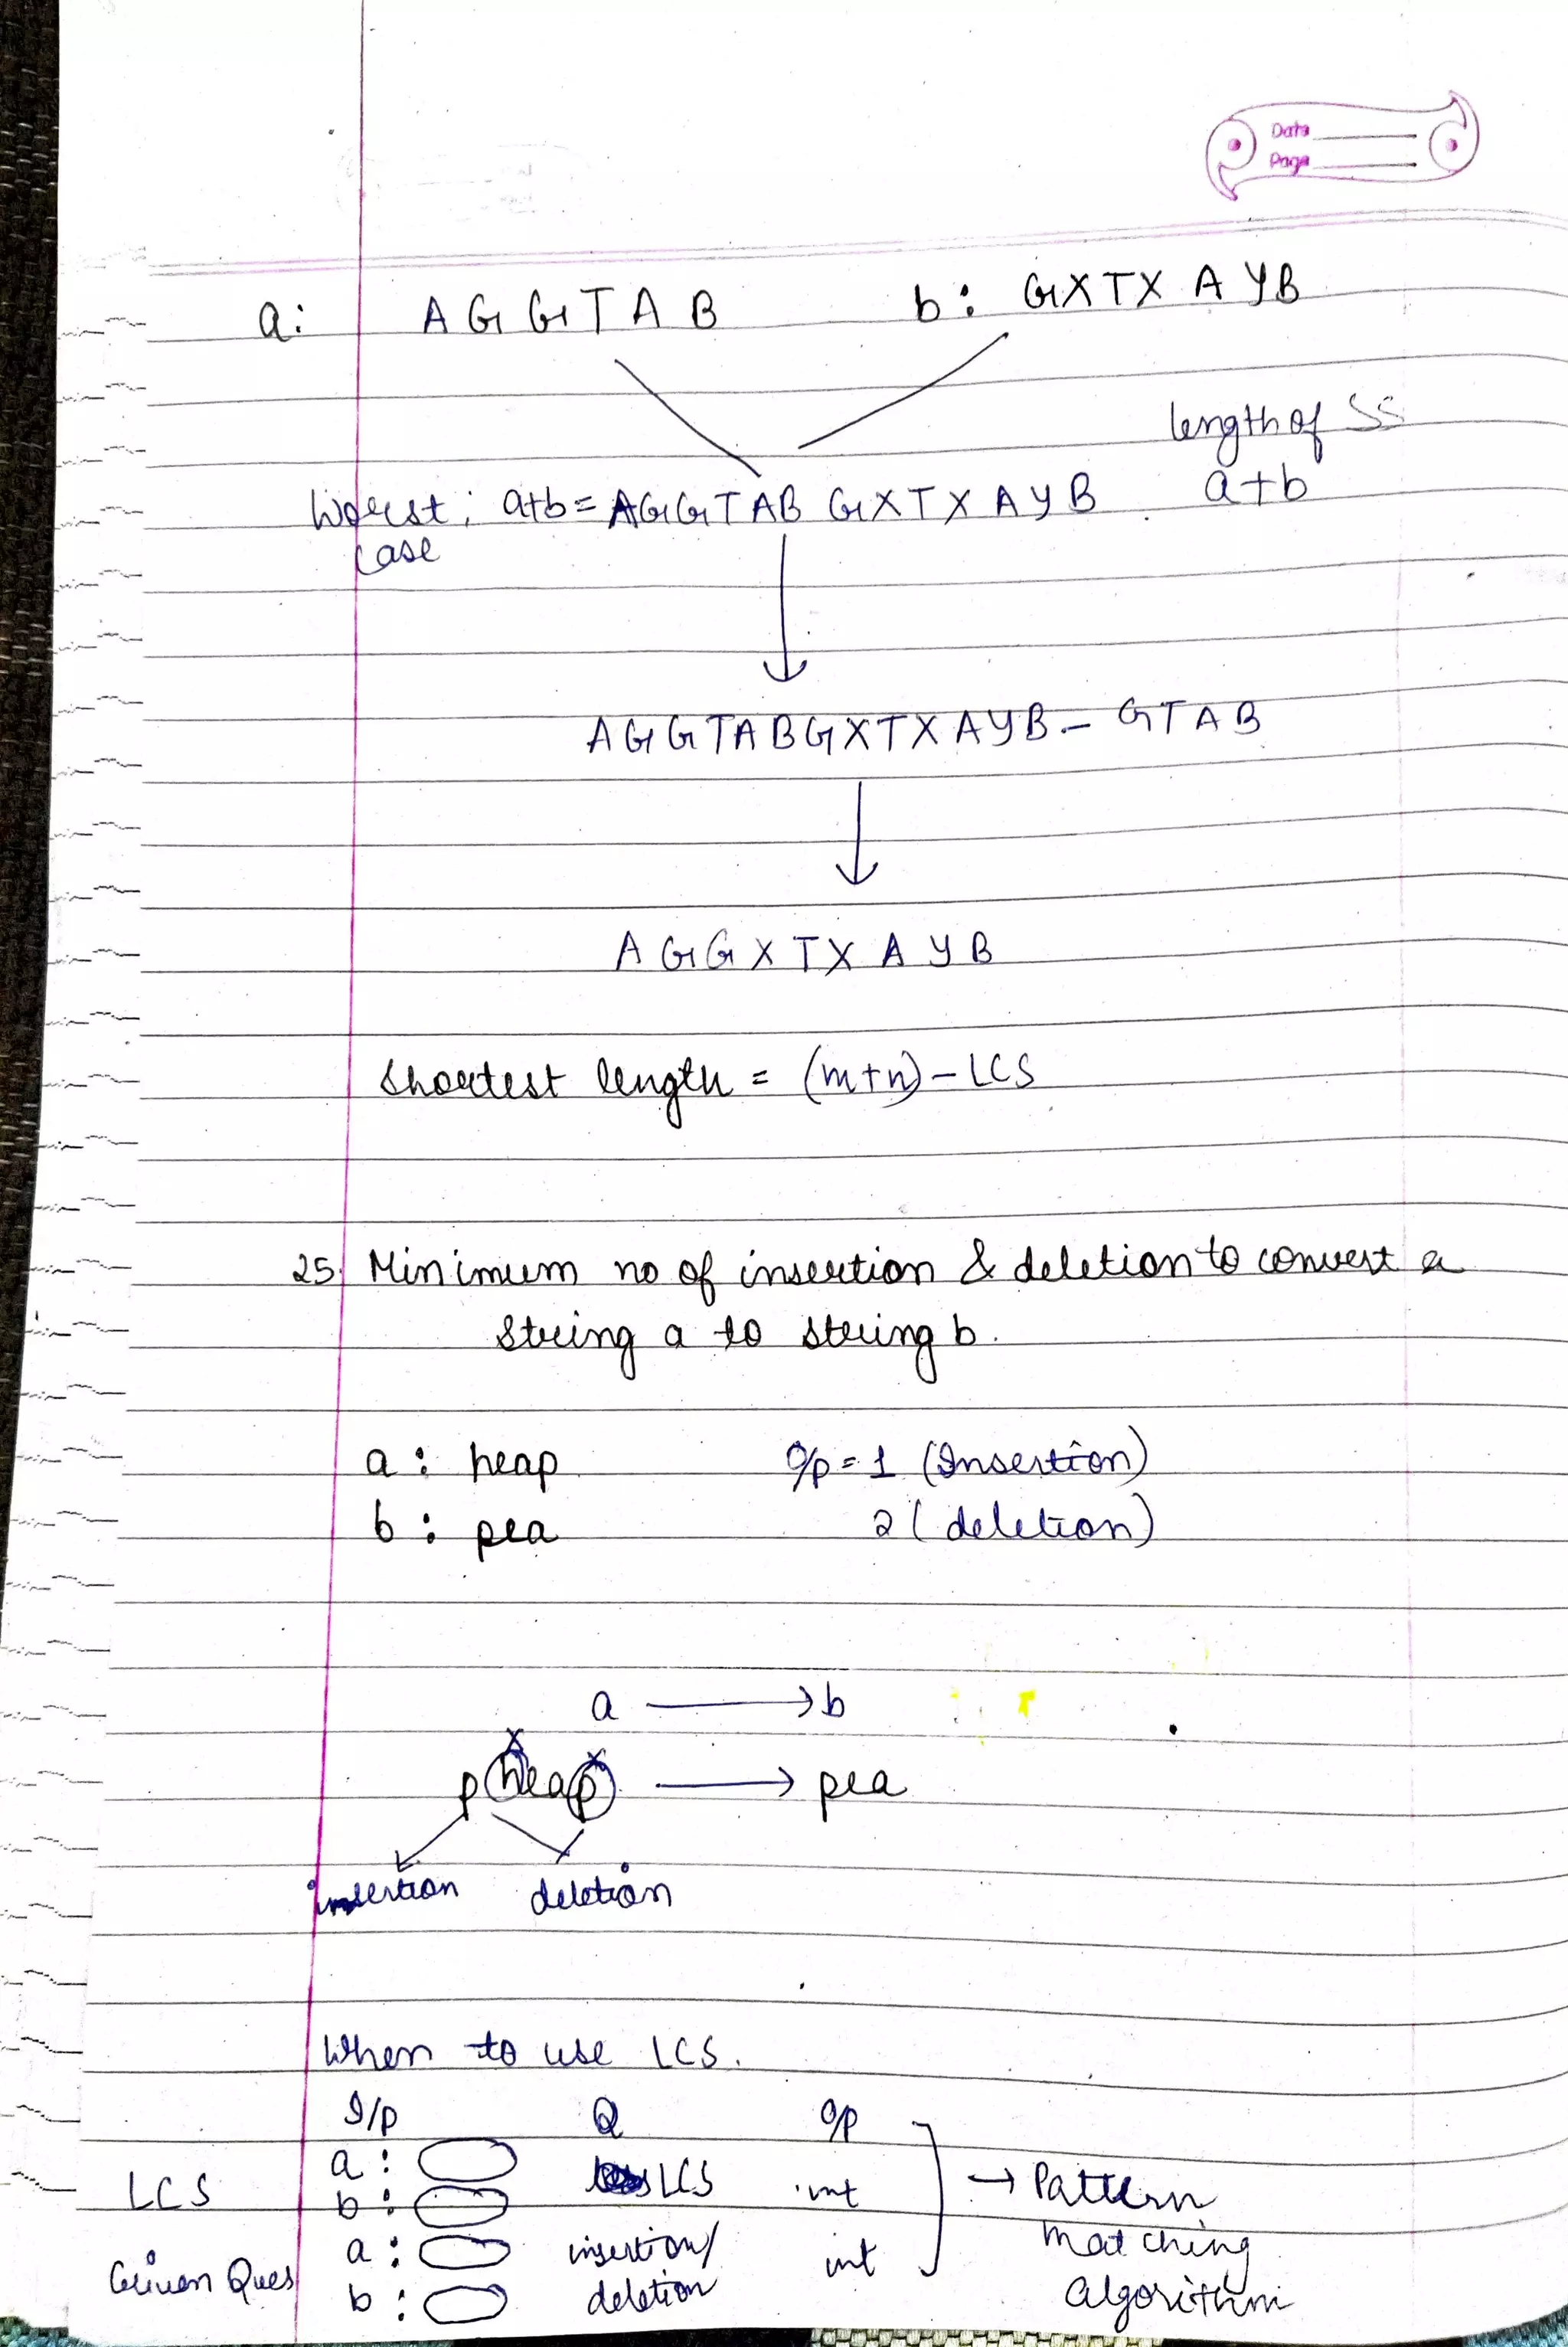 Date
Page
a: AGGTAB b: GXTXAYB
length of SS
Worst: a+b = AGGTAB GXTXAYB a+b
case
AGGTABGXTXAYB - GTAB
AGGXTXAYB
Shortest length = (m+n) - LCS
25. Minimum no of insertion & deletion to convert a
string a to string b.
a : heap O/p = 1 (Insertion)
b : pea 2 (deletion)
a → b
pheap → pea
insertion deletion
When to use LCS.
I/P Q O/P
a :
LCS LCS int → Pattern
b :
a : insertion/ int matching
Given Ques
b : deletion algorithm